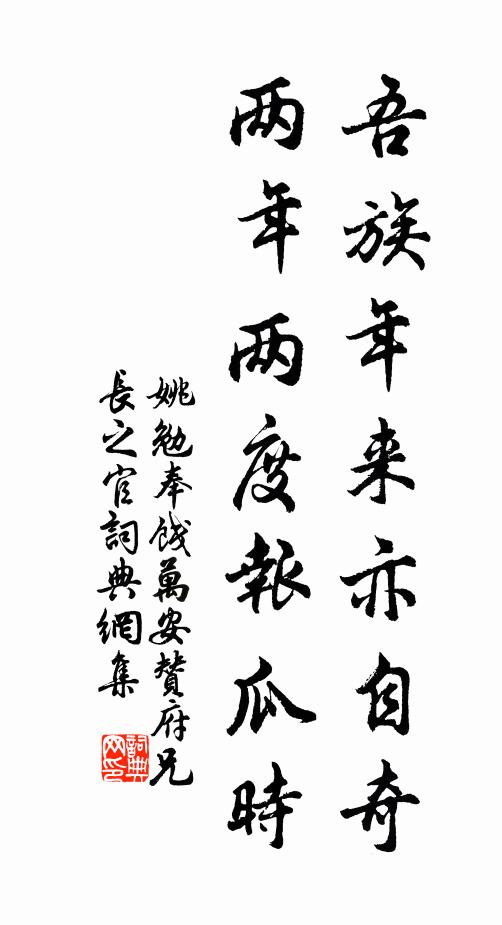 吾族年来亦自奇
两年两度報瓜時
姚勉奉餞萬安贊府兄
長之官詞典網集
詞典网印